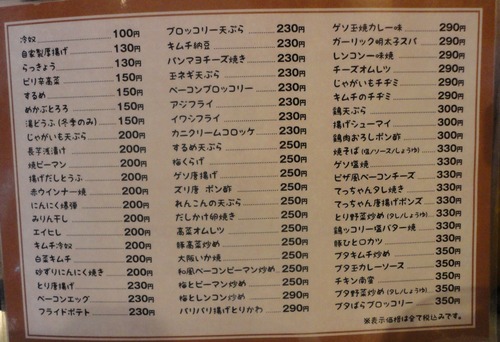 冷奴 100円
自家製厚揚げ 130円
らっきょう 130円
ピリ辛高菜 150円
するめ 150円
めかぶとろろ 150円
湯どうふ(冬季のみ) 150円
じゃがいも天ぷら 200円
長芋浅漬け 200円
焼ピーマン 200円
揚げだしとうふ 200円
赤ウインナー焼 200円
にんにく爆弾 200円
みりん干し 200円
エイヒレ 200円
キムチ冷奴 200円
白菜キムチ 200円
砂ずりにんにく焼き 200円
とり唐揚げ 230円
ベーコンエッグ 230円
フライドポテト 230円
ブロッコリー天ぷら 230円
キムチ納豆 230円
パンマヨチーズ焼き 230円
玉ネギ天ぷら 230円
ベーコンブロッコリー 230円
アジフライ 230円
イワシフライ 230円
カニクリームコロッケ 230円
するめ天ぷら 250円
梅くらげ 250円
ゲソ唐揚げ 250円
ズリ唐 ポン酢 250円
れんこんの天ぷら 250円
だしかけ卵焼き 250円
高菜オムレツ 250円
豚高菜炒め 250円
大阪いか焼 250円
和風ベーコンピーマン炒め 250円
梅とピーマン炒め 250円
梅とレンコン炒め 290円
パリパリ揚げとりかわ 290円
ゲソ玉焼カレー味 290円
ガーリック明太子スパ 290円
レンコン一味焼 290円
チーズオムレツ 290円
じゃがいもチヂミ 290円
キムチのチヂミ 290円
鶏天ぷら 300円
揚げシューマイ 300円
鶏肉おろしポン酢 300円
焼そば(塩/ソース/しょうゆ) 330円
ゲソ塩焼 330円
ピザ風ベーコンチーズ 330円
てっちゃんタレ焼き 330円
てっちゃん唐揚げポンズ 330円
とり野菜炒め(タレ/しょうゆ) 330円
鶏ッコリー塩バター焼 330円
豚ひと口カツ 330円
ブタキムチ炒め 350円
ブタ玉カレーソース 350円
チキン南蛮 350円
ブタ野菜炒め(タレ/しょうゆ) 350円
ブタばらブロッコリー 350円
※表示価格は全て税込みです。